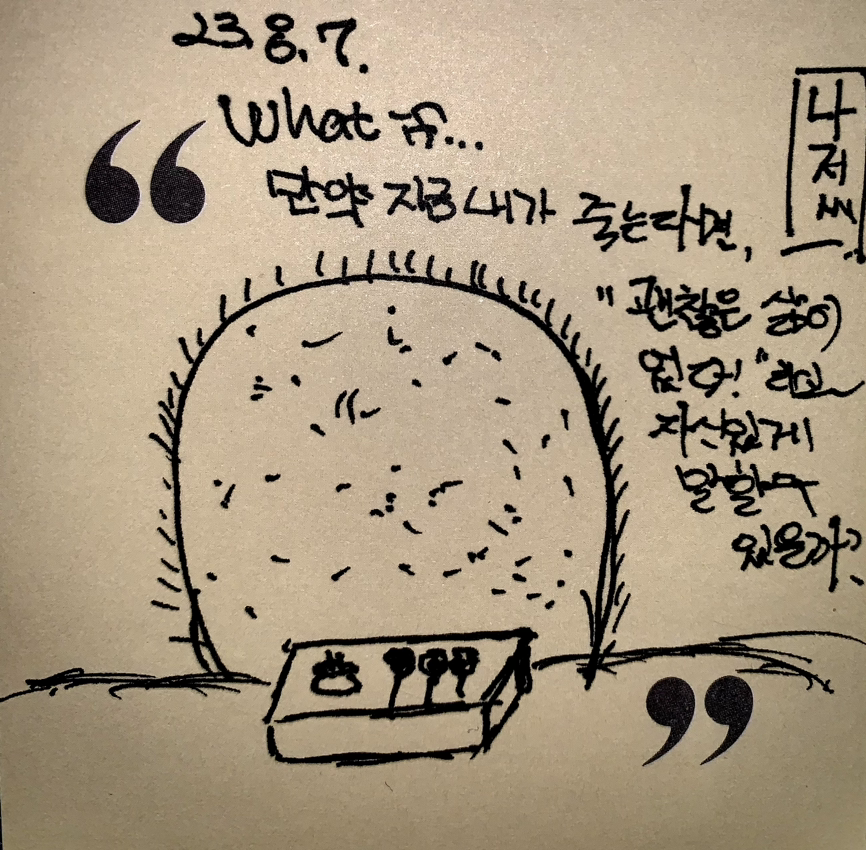 23. 8. 7.
What if...
만약 지금 내가 죽는다면,
"괜찮은 삶이
었다!"라고
자신있게
말할 수
있을까?
나
저
씨